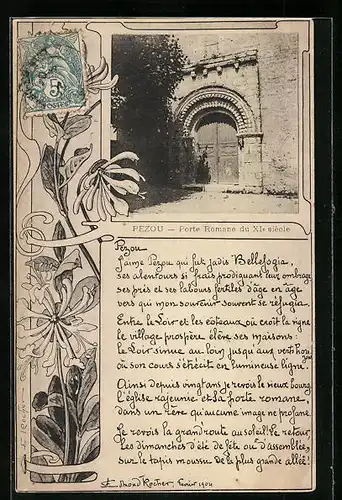 POSTES
5
PEZOU — Porte Romane du XIe siècle
Pezou
J'aime Pezou qui fut jadis Bellefogia,
ses alentours si frais prodiguant leur ombrage
ses prés et ses labours fertiles d'âge en âge
vers qui mon souvenir souvent se réfugia.
Entre le Loir et les côteaux où croît la vigne
le village prospère élève ses maisons:
le Loir sinue au loin jusqu'aux verts
où son cours s'étrécit en lumineuse ligne.
Ainsi depuis vingt ans je revois le vieux bourg
l'église rajeunie et sa porte romane,
dans un rêve qu'aucune image ne profane
Je revois la grand'route au soleil! Le retour,
les dimanches d'été de fête ou d'assemblée,
sur le tapis moussu de la plus grande allée!
Edmond Rocher, 1904